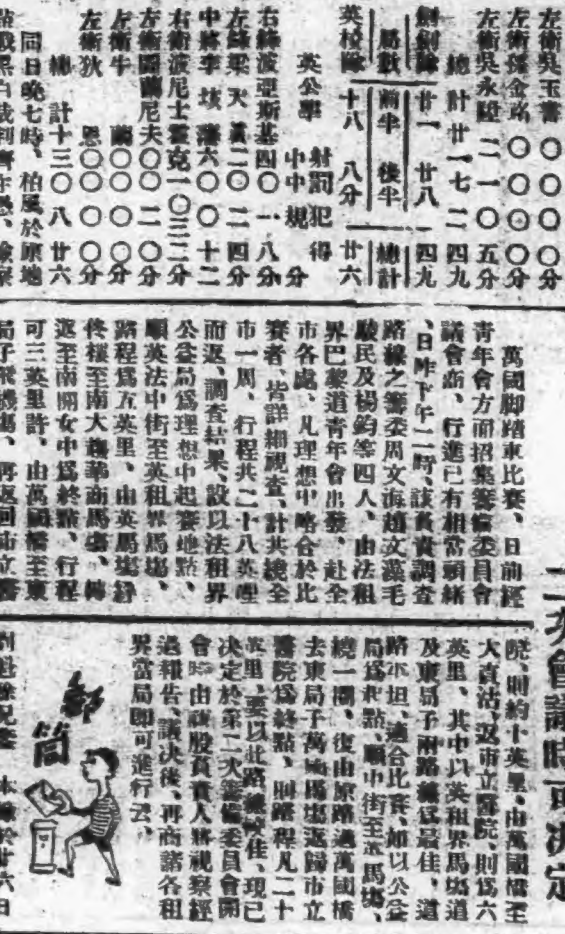 左衛吳玉書〇〇〇〇分
左衛孫金路〇〇〇〇分
左衛吳永陞二一〇五分
總計廿一七二四九
劍劍隊 廿一 廿八 四九
局數 前半 後半 總計
英校隊 十八 八分 廿六
英公學 射中 罰中 犯規 得分
右鋒波亞斯基四〇一八分
左鋒梁天義二〇二四分
中將李垓藩六〇〇十二
右衛波尼士霍克一〇三二分
左衛關蘭尼夫〇〇二〇分
左衛牛爾〇〇〇〇分
左衛狄恩〇〇〇〇分
總計十三〇八廿六
同日晚七時、柏風於原地
萬國脚踏車比賽、日前經
青年會方面招集籌備委員會
議會商、行進已有相當頭緒
、日昨下午二時、該負責調查
路線之籌委周文海趙文藻毛
駿民及楊鈞等四人、由法租
界巴黎道青年會出發、赴全
市各處、凡理想中略合於比
賽者、皆詳細視查、計共繞全
市一周、行程共二十八英哩
而返、調查結果、設以法租界
公益局爲理想中起賽地點、
順英法中街至英租界馬塲、
路程爲五英里、由英馬塲經
佟樓至南大趨華商馬塲、轉
返至南開女中爲終點、行程
可三英里許、由萬國橋至東
局子飛機塲、再返回市立醫
二次會議時可決定
院、則約十英里、由萬國橋至
大直沽、返市立醫院、則爲六
英里、其中以英租界馬塲道
及東局子兩路線爲最佳、道
路平坦、適合比賽、如以公益
局爲起點、順中街至英馬塲、
繞一圈、復由原路過萬國橋
去東局子萬國馬塲返歸市立
醫院爲終點、則路程凡二十
英里、要以此路線較佳、現已
決定於第二次籌備委員會開
會時由該股負責人將視察經
過報告、議決後、再商諸各租
界當局即可進行云、
郵筒
本 於廿六日